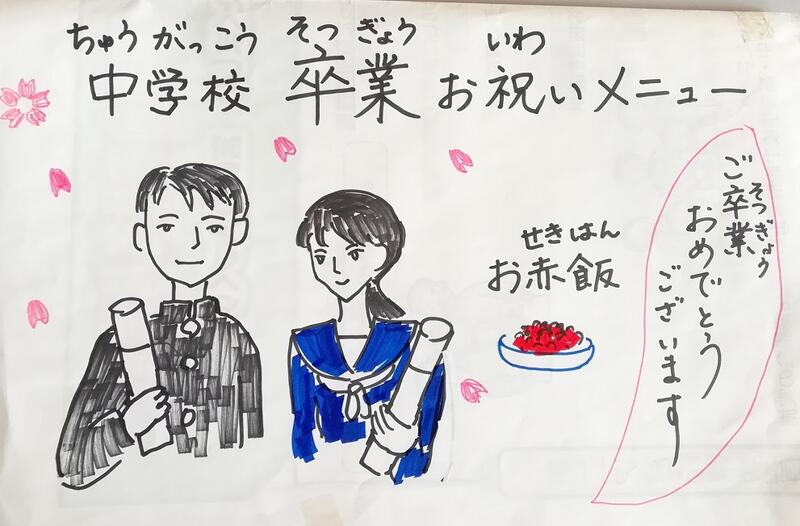 ちゅうがっこう そつぎょう いわ
中学校 卒業 お祝いメニュー
せきはん
お赤飯
そつぎょう
ご卒業
おめでとう
ございます